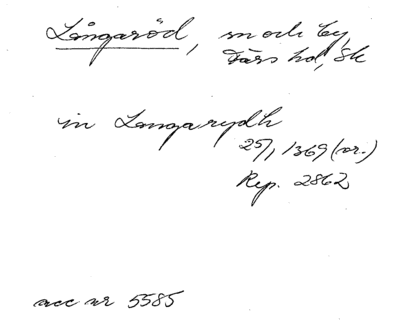 Långaröd, sn och by,
Färs hd, Sk
in Langarydh
25/1 1369 (or.)
Rep. 2862
acc nr 5585